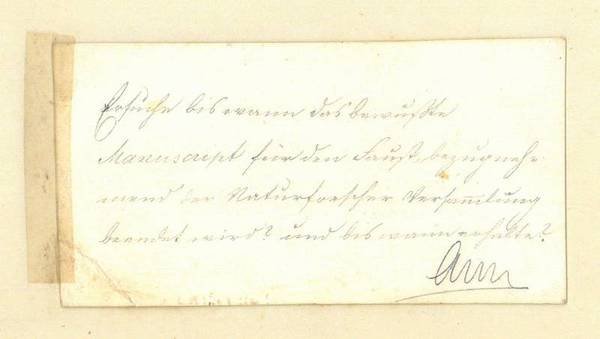 Ersuche bis wann das bewußte
Manuscript für den Faust bezugneh
mend der Naturforscher Versammlung
beendet wird? und bis wann erhalte?